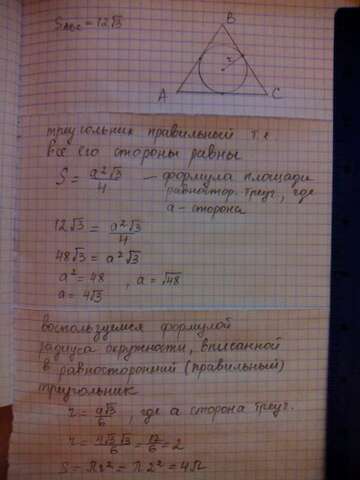 S_ABC = 12√3
B
r
A
C
треугольник правильный т.е
все его стороны равны
S = a²√3/4 — формула площади
равностор. треуг., где
a - сторона
12√3 = a²√3/4
48√3 = a²√3
a² = 48 , a = √48
a = 4√3
воспользуемся формулой
радиуса окружности, вписанной
в равносторонний (правильный)
треугольник
r = a√3/6 , где a сторона треуг.
r = 4√3·√3/6 = 12/6 = 2
S = πr² = π 2² = 4π